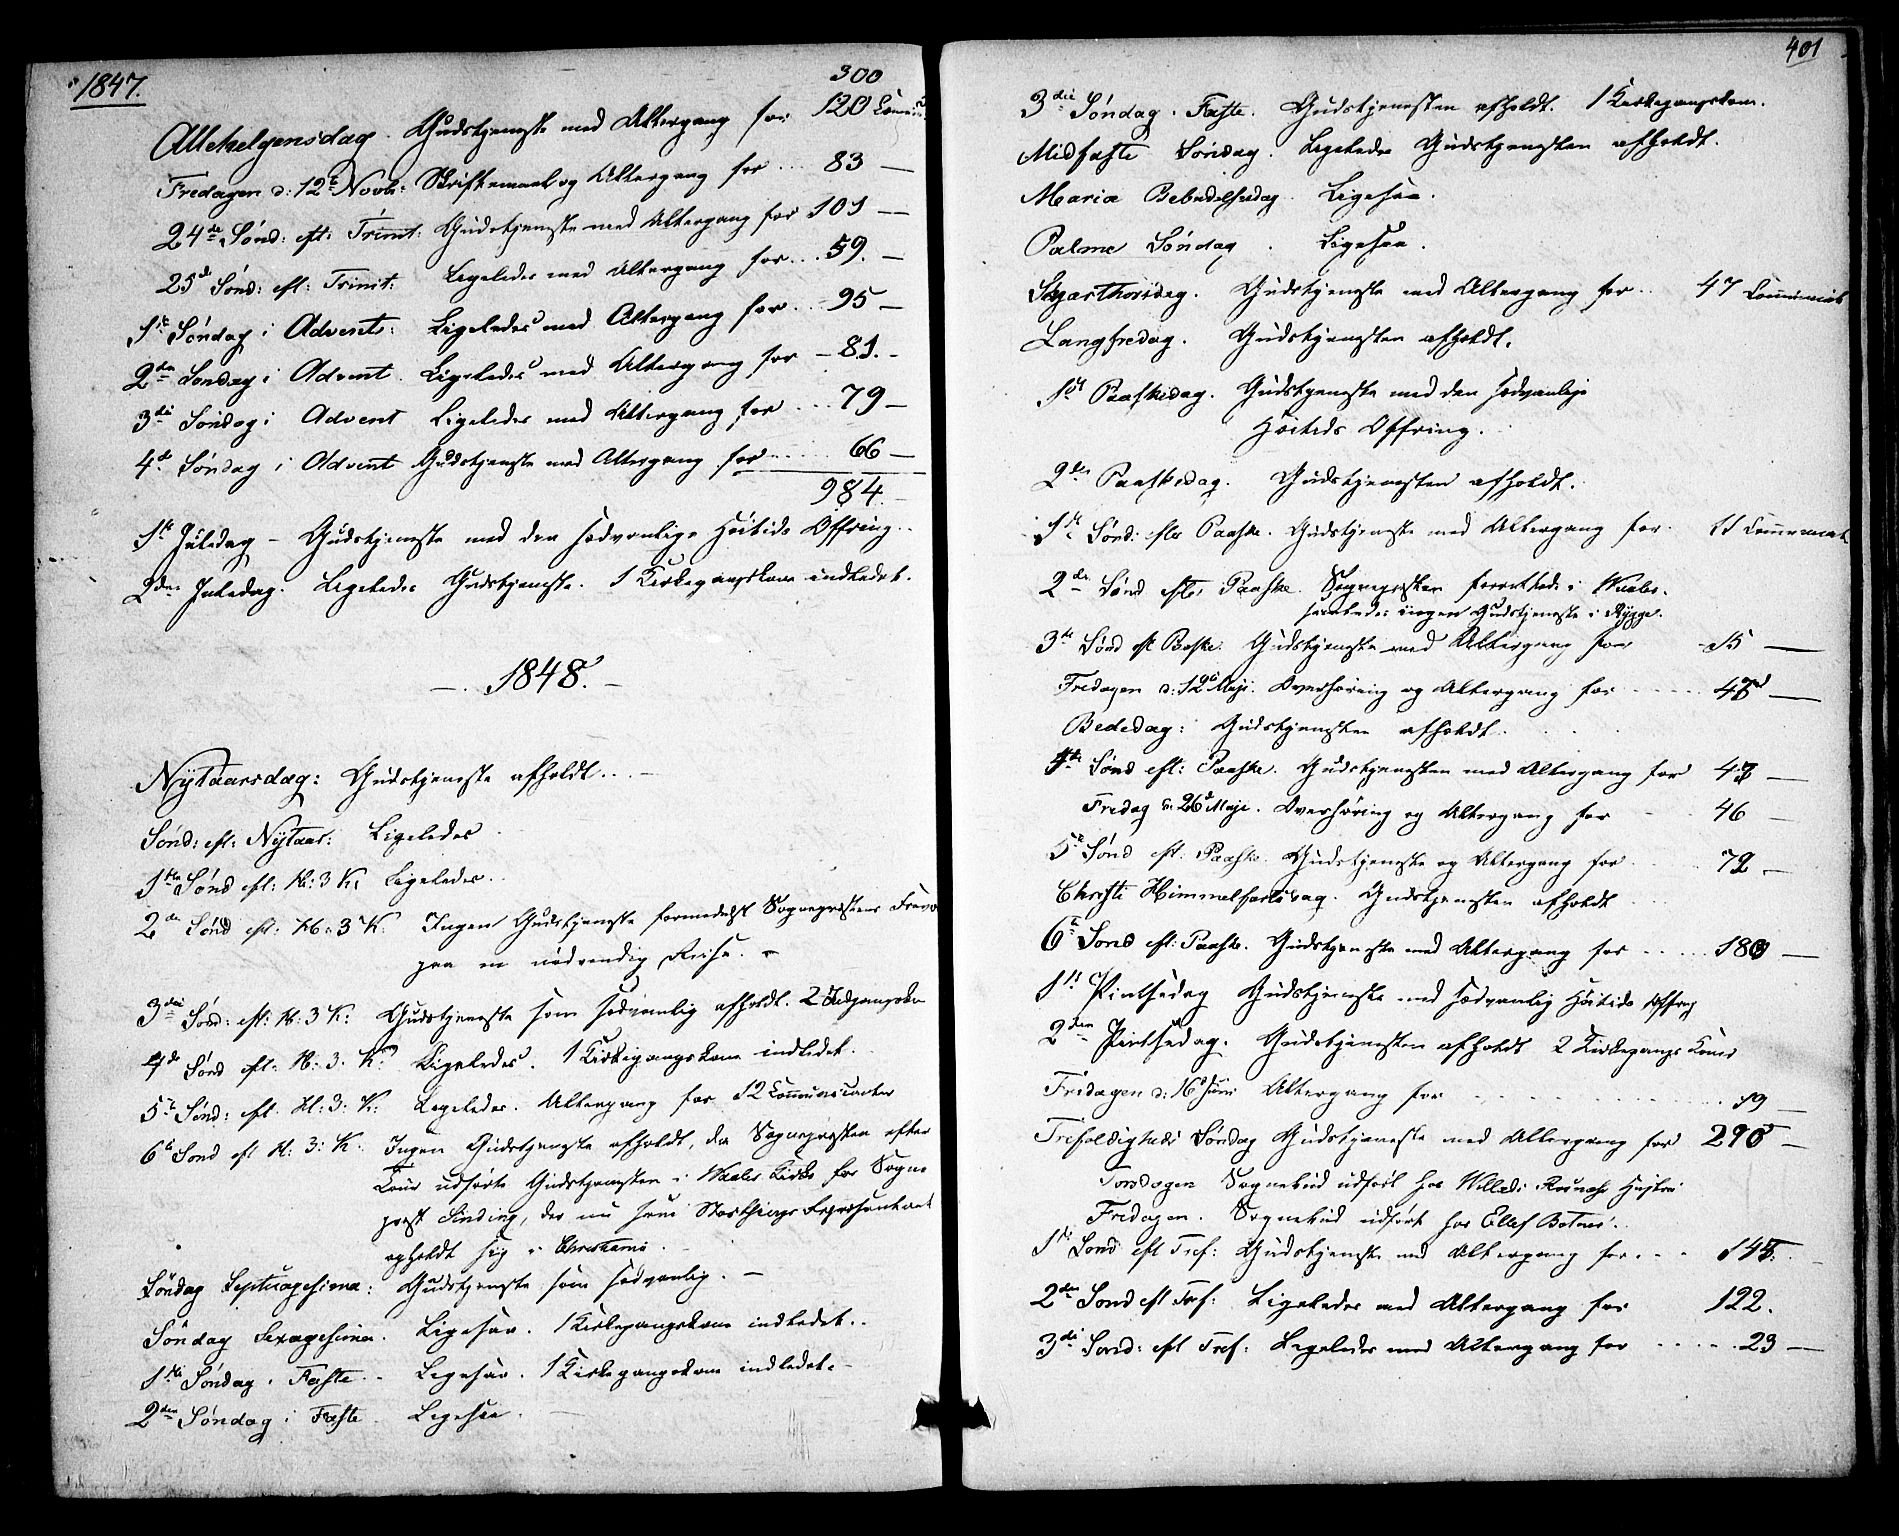 1847.
300
Allehelgensdag. Gudstjeneste med Altergang for 120 Commu
Fredagen d: 12te Novbr: Skriftemaal og Altergang for ... 83 —
24de Sønd: eft: Trinit: Gudstjeneste med Altergang for 101 —
25de Sønd: eft: Trinit: Ligeledes med Altergang for ... 59. —
1ste Søndag i Advent: Ligeledes med Altergang for ... 95 —
2den Søndag i Advent. Ligeledes med Altergang for — 81. —
3die Søndag i Advent Ligeledes med Altergang for ... 79 —
4de Søndag i Advent Gudstjeneste med Altergang for ..... 66 —
984.
1ste Juledag — Gudstjeneste med den sædvanlige Høitids Offring.
2den Juledag. Ligeledes Gudstjeneste. 1 Kirkegangskone indledet.
— 1848. —
Nytaarsdag: Gudstjeneste afholdt. —
Sønd: eft: Nytaar: Ligeledes
1ste Sønd eft: H: 3 K: Ligeledes.
2den Sønd eft: H: 3 K: Ingen Gudstjeneste formedelst Sognepræstens Frava
paa en nødvendig Reise. —
3die Sønd: eft: H: 3 K: Gudstjeneste som sædvanlig afholdt. 2
4de Sønd eft: H: 3. K: Ligeledes. 1 Kirkegangskone indledet.
5te Sønd: eft H: 3: K: Ligeledes. Altergang for 12 Communicanter
6te Sønd eft H: 3: K: Ingen Gudstjeneste afholdt, da Sognepræsten efter
Tour udførte Gudstjenesten i Waaler Kirke for Sogne
præst Sinding, der nu som Storthings Repræsentant
opholdt sig i Christiania.
Søndag Septuagesima: Gudstjeneste som sædvanlig. —
Søndag Sexagesima. Ligesaa. 1 Kirkegangskone indledet.
1ste Søndag i Faste. Ligesaa. 1 Kirkegangskone indledet. —
2den Søndag i Faste. Ligesaa.
401
3die Søndag i Faste. Gudstjenesten afholdt. 1 Kirkegangskone.
Midfaste Søndag. Ligeledes Gudstjenesten afholdt.
Mariæ Bebudelsesdag. Ligesaa.
Palme Søndag. Ligesaa.
Skjærthorsdag. Gudstjeneste med Altergang for .. 47 Communicant
Langfredag. Gudstjenesten afholdt.
1ste Paaskedag. Gudstjeneste med den sædvanlige
Høitids Offring.
2den Paaskedag. Gudstjenesten afholdt.
1ste Sønd: efter Paaske. Gudstjeneste med Altergang for. 11 Communicant
2den Sønd efter Paaske. Sognepræsten forrettede i Waaler.
saaledes ingen Gudstjeneste i Rygge.
3die Sønd eft Paaske. Gudstjeneste med Altergang for 15 —
Fredagen d: 12te Maji. Overhøring og Altergang for ....
Bededag: Gudstjenesten afholdt.
4de Sønd eft: Paaske. Gudstjenesten med Altergang for
Fredag d: 26de Maje. Overhøring og Altergang for 46 —
5te Sønd eft: Paaske. Gudstjeneste og Altergang for 72 —
Christi Himmelfartsdag. Gudstjenesten afholdt
6te Sønd eft: Paaske. Gudstjeneste med Altergang for
1ste Pintsedag Gudstjeneste med sædvanlig Høitids Offring
2den Pintsedag. Gudstjenesten afholdt 2 Kirkegangs Koner
Fredagen d: 16de Juni Altergang for 19 —
Trefoldigheds Søndag Gudstjeneste med Altergang for 290 —
Torsdagen Sognebud udført hos
Fredagen. Sognebud udført hos Ellef Botner.
1ste Sønd eft Tref: Gudstjeneste med Altergang for ...
2den Sønd eft Tref: Ligeledes med Altergang for 122.
3die Sønd: eft Tref: Ligeledes med Altergang for ..... 23 —